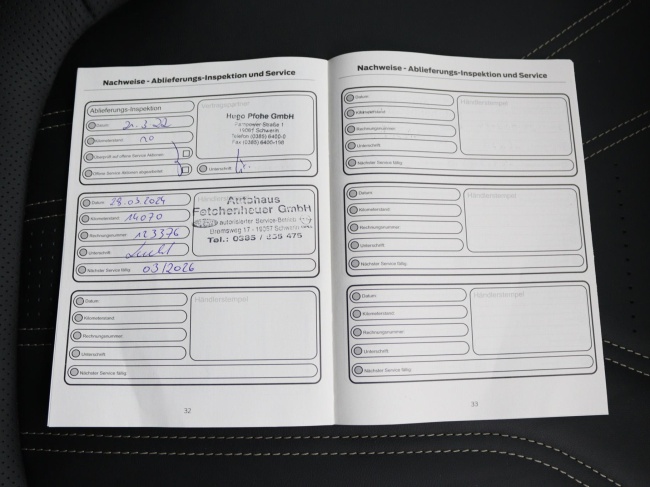 Nachweise - Ablieferungs-Inspektion und Service
Ablieferungs-Inspektion
Datum
Kilometerstand
Überprüft auf offene Service Aktionen
Offene Service Aktionen abgearbeitet
Vertragspartner
Hugo Pfohe GmbH
19061 Schwerin
Telefon (0385) 6400-0
Unterschrift
Datum 28.03.2024
Kilometerstand 14070
Rechnungsnummer 123376
Unterschrift
Nächster Service fällig 03/2026
Händlerstempel
Autohaus
Fetchenheuer GmbH
autorisierter Service-Betrieb
Bremsweg 17 - 19057 Schwerin
Datum
Kilometerstand
Rechnungsnummer
Unterschrift
Nächster Service fällig
Händlerstempel
32
Nachweise - Ablieferungs-Inspektion und Service
Datum
Kilometerstand
Rechnungsnummer
Unterschrift
Nächster Service fällig
Händlerstempel
Datum
Kilometerstand
Rechnungsnummer
Unterschrift
Nächster Service fällig
Händlerstempel
Datum
Kilometerstand
Rechnungsnummer
Unterschrift
Nächster Service fällig
Händlerstempel
33